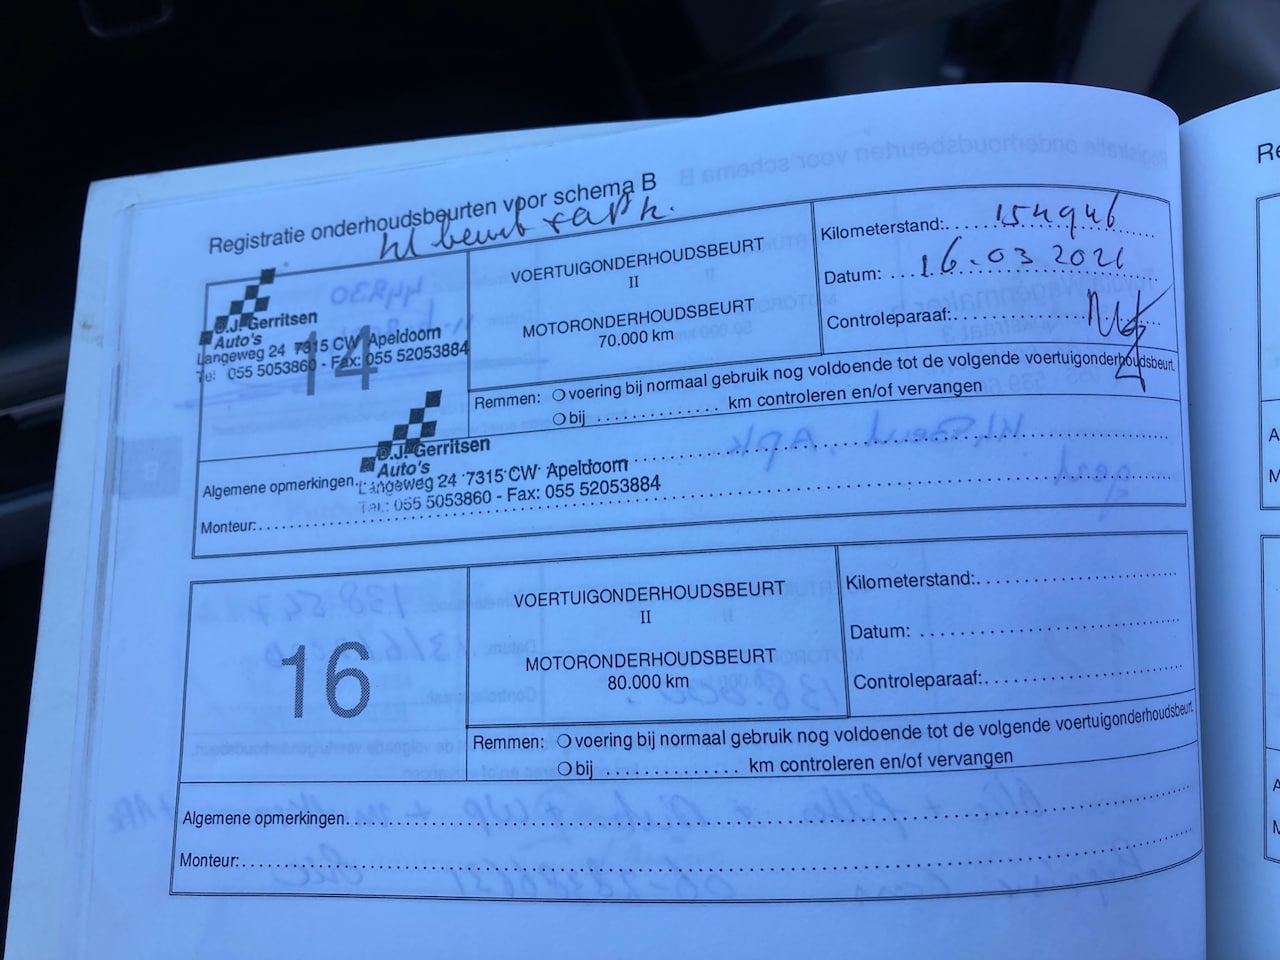 Registratie onderhoudsbeurten voor schema B
kl beurt + apk.
14
D.J. Gerritsen
Auto's
Langeweg 24 7315 CW Apeldoorn
Tel: 055 5053860 - Fax: 055 52053884
VOERTUIGONDERHOUDSBEURT
II
MOTORONDERHOUDSBEURT
70.000 km
Kilometerstand: 154946
Datum: 16.03 2021
Controleparaaf:
Remmen: voering bij normaal gebruik nog voldoende tot de volgende voertuigonderhoudsbeurt.
bij ............. km controleren en/of vervangen
D.J. Gerritsen
Auto's
Langeweg 24 7315 CW Apeldoorn
Tel: 055 5053860 - Fax: 055 52053884
Algemene opmerkingen
Monteur:
16
VOERTUIGONDERHOUDSBEURT
II
MOTORONDERHOUDSBEURT
80.000 km
Kilometerstand:
Datum:
Controleparaaf:
Remmen: voering bij normaal gebruik nog voldoende tot de volgende voertuigonderhoudsbeurt.
bij ............. km controleren en/of vervangen
Algemene opmerkingen
Monteur: